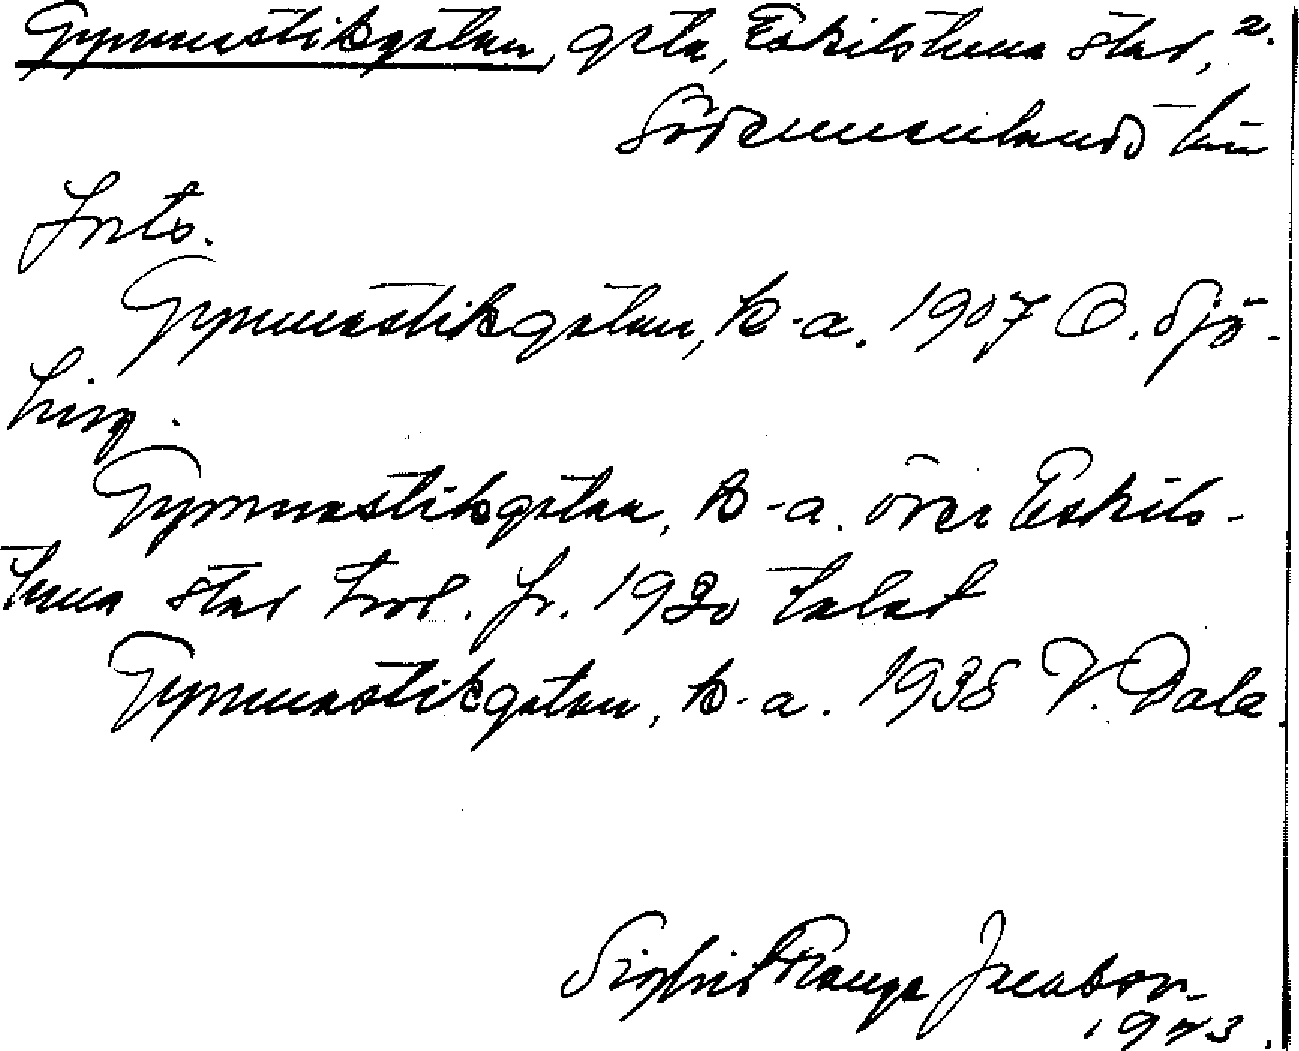 Gymnastikgatan, gata, Eskilstuna stad, 2.
Södermanlands län
Forts.
Gymnastikgatan, k-a. 1907 O. Sjö-
ling.
Gymnastikgatan, k-a. över Eskils-
tuna stad trol. fr. 1920 talet
Gymnastikgatan, k-a. 1938 V. Dala.
Sigfrid Ranga Jacobson
1943.